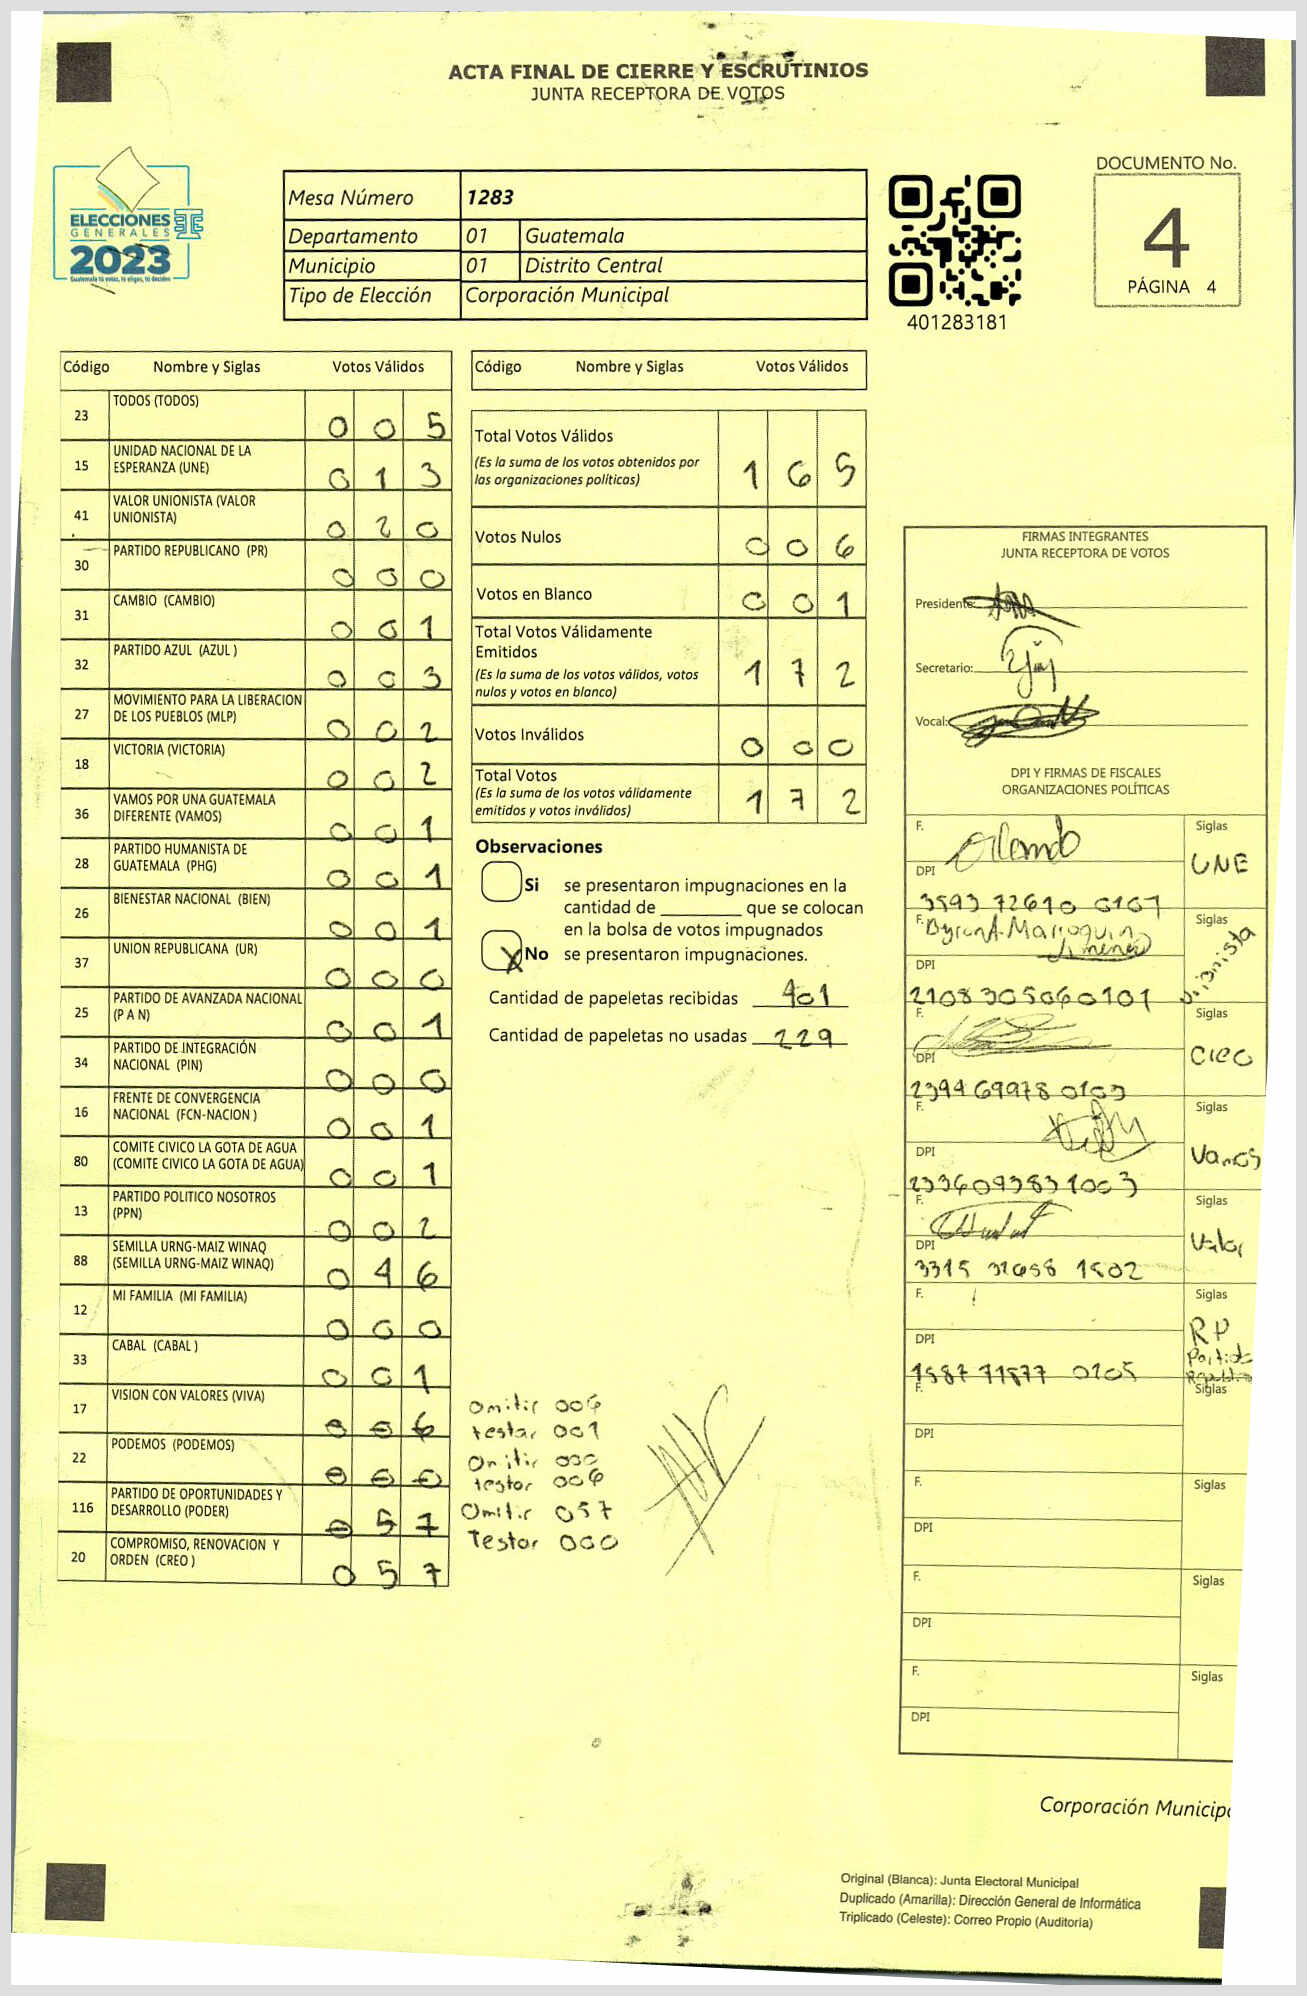 ACTA FINAL DE CIERRE Y ESCRUTINIOS
JUNTA RECEPTORA DE VOTOS
ELECCIONES
GENERALES
2023
Guatemala tú votas, tú eliges, tú decides
Mesa Número 1283
Departamento 01 Guatemala
Municipio 01 Distrito Central
Tipo de Elección Corporación Municipal
401283181
DOCUMENTO No.
4
PÁGINA 4
Código Nombre y Siglas Votos Válidos
23 TODOS (TODOS) 0 0 5
15 UNIDAD NACIONAL DE LA
ESPERANZA (UNE) 0 1 3
41 VALOR UNIONISTA (VALOR
UNIONISTA) 0 2 0
30 PARTIDO REPUBLICANO (PR) 0 0 0
31 CAMBIO (CAMBIO) 0 0 1
32 PARTIDO AZUL (AZUL ) 0 0 3
27 MOVIMIENTO PARA LA LIBERACION
DE LOS PUEBLOS (MLP) 0 0 2
18 VICTORIA (VICTORIA) 0 0 2
36 VAMOS POR UNA GUATEMALA
DIFERENTE (VAMOS) 0 0 1
28 PARTIDO HUMANISTA DE
GUATEMALA (PHG) 0 0 1
26 BIENESTAR NACIONAL (BIEN) 0 0 1
37 UNION REPUBLICANA (UR) 0 0 0
25 PARTIDO DE AVANZADA NACIONAL
(P A N) 0 0 1
34 PARTIDO DE INTEGRACIÓN
NACIONAL (PIN) 0 0 0
16 FRENTE DE CONVERGENCIA
NACIONAL (FCN-NACION ) 0 0 1
80 COMITE CIVICO LA GOTA DE AGUA
(COMITE CIVICO LA GOTA DE AGUA) 0 0 1
13 PARTIDO POLITICO NOSOTROS
(PPN) 0 0 2
88 SEMILLA URNG-MAIZ WINAQ
(SEMILLA URNG-MAIZ WINAQ) 0 4 6
12 MI FAMILIA (MI FAMILIA) 0 0 0
33 CABAL (CABAL ) 0 0 1
17 VISION CON VALORES (VIVA) 0 0 6
22 PODEMOS (PODEMOS) 0 0 0
116 PARTIDO DE OPORTUNIDADES Y
DESARROLLO (PODER) 0 5 7
20 COMPROMISO, RENOVACION Y
ORDEN (CREO ) 0 5 7
Código Nombre y Siglas Votos Válidos
Total Votos Válidos
(Es la suma de los votos obtenidos por
las organizaciones políticas) 1 6 5
Votos Nulos 0 0 6
Votos en Blanco 0 0 1
Total Votos Válidamente
Emitidos
(Es la suma de los votos válidos, votos
nulos y votos en blanco) 1 7 2
Votos Inválidos 0 0 0
Total Votos
(Es la suma de los votos válidamente
emitidos y votos inválidos) 1 7 2
Observaciones
Si se presentaron impugnaciones en la
cantidad de ________ que se colocan
en la bolsa de votos impugnados
X No se presentaron impugnaciones.
Cantidad de papeletas recibidas 401
Cantidad de papeletas no usadas 229
Omitir 006
testar 001
Omitir 000
testar 006
Omitir 057
Testar 000
FIRMAS INTEGRANTES
JUNTA RECEPTORA DE VOTOS
Presidente:
Secretario:
Vocal:
DPI Y FIRMAS DE FISCALES
ORGANIZACIONES POLÍTICAS
F. Orlando Siglas
DPI UNE
3593 72610 0101
F. Byron A. Marroquin Siglas
Jimenez
DPI Unionista
2108305060101
F. Siglas
DPI CREO
2394699780103
F. Siglas
DPI Vamos
2336093831003
F. Siglas
DPI Valor
3315 31658 1502
F. Siglas
DPI RP
Partido
Republicano
1587 71577 0105
F. Siglas
DPI
F. Siglas
DPI
F. Siglas
DPI
F. Siglas
DPI
Corporación Municipa
Original (Blanca): Junta Electoral Municipal
Duplicado (Amarilla): Dirección General de Informática
Triplicado (Celeste): Correo Propio (Auditoria)